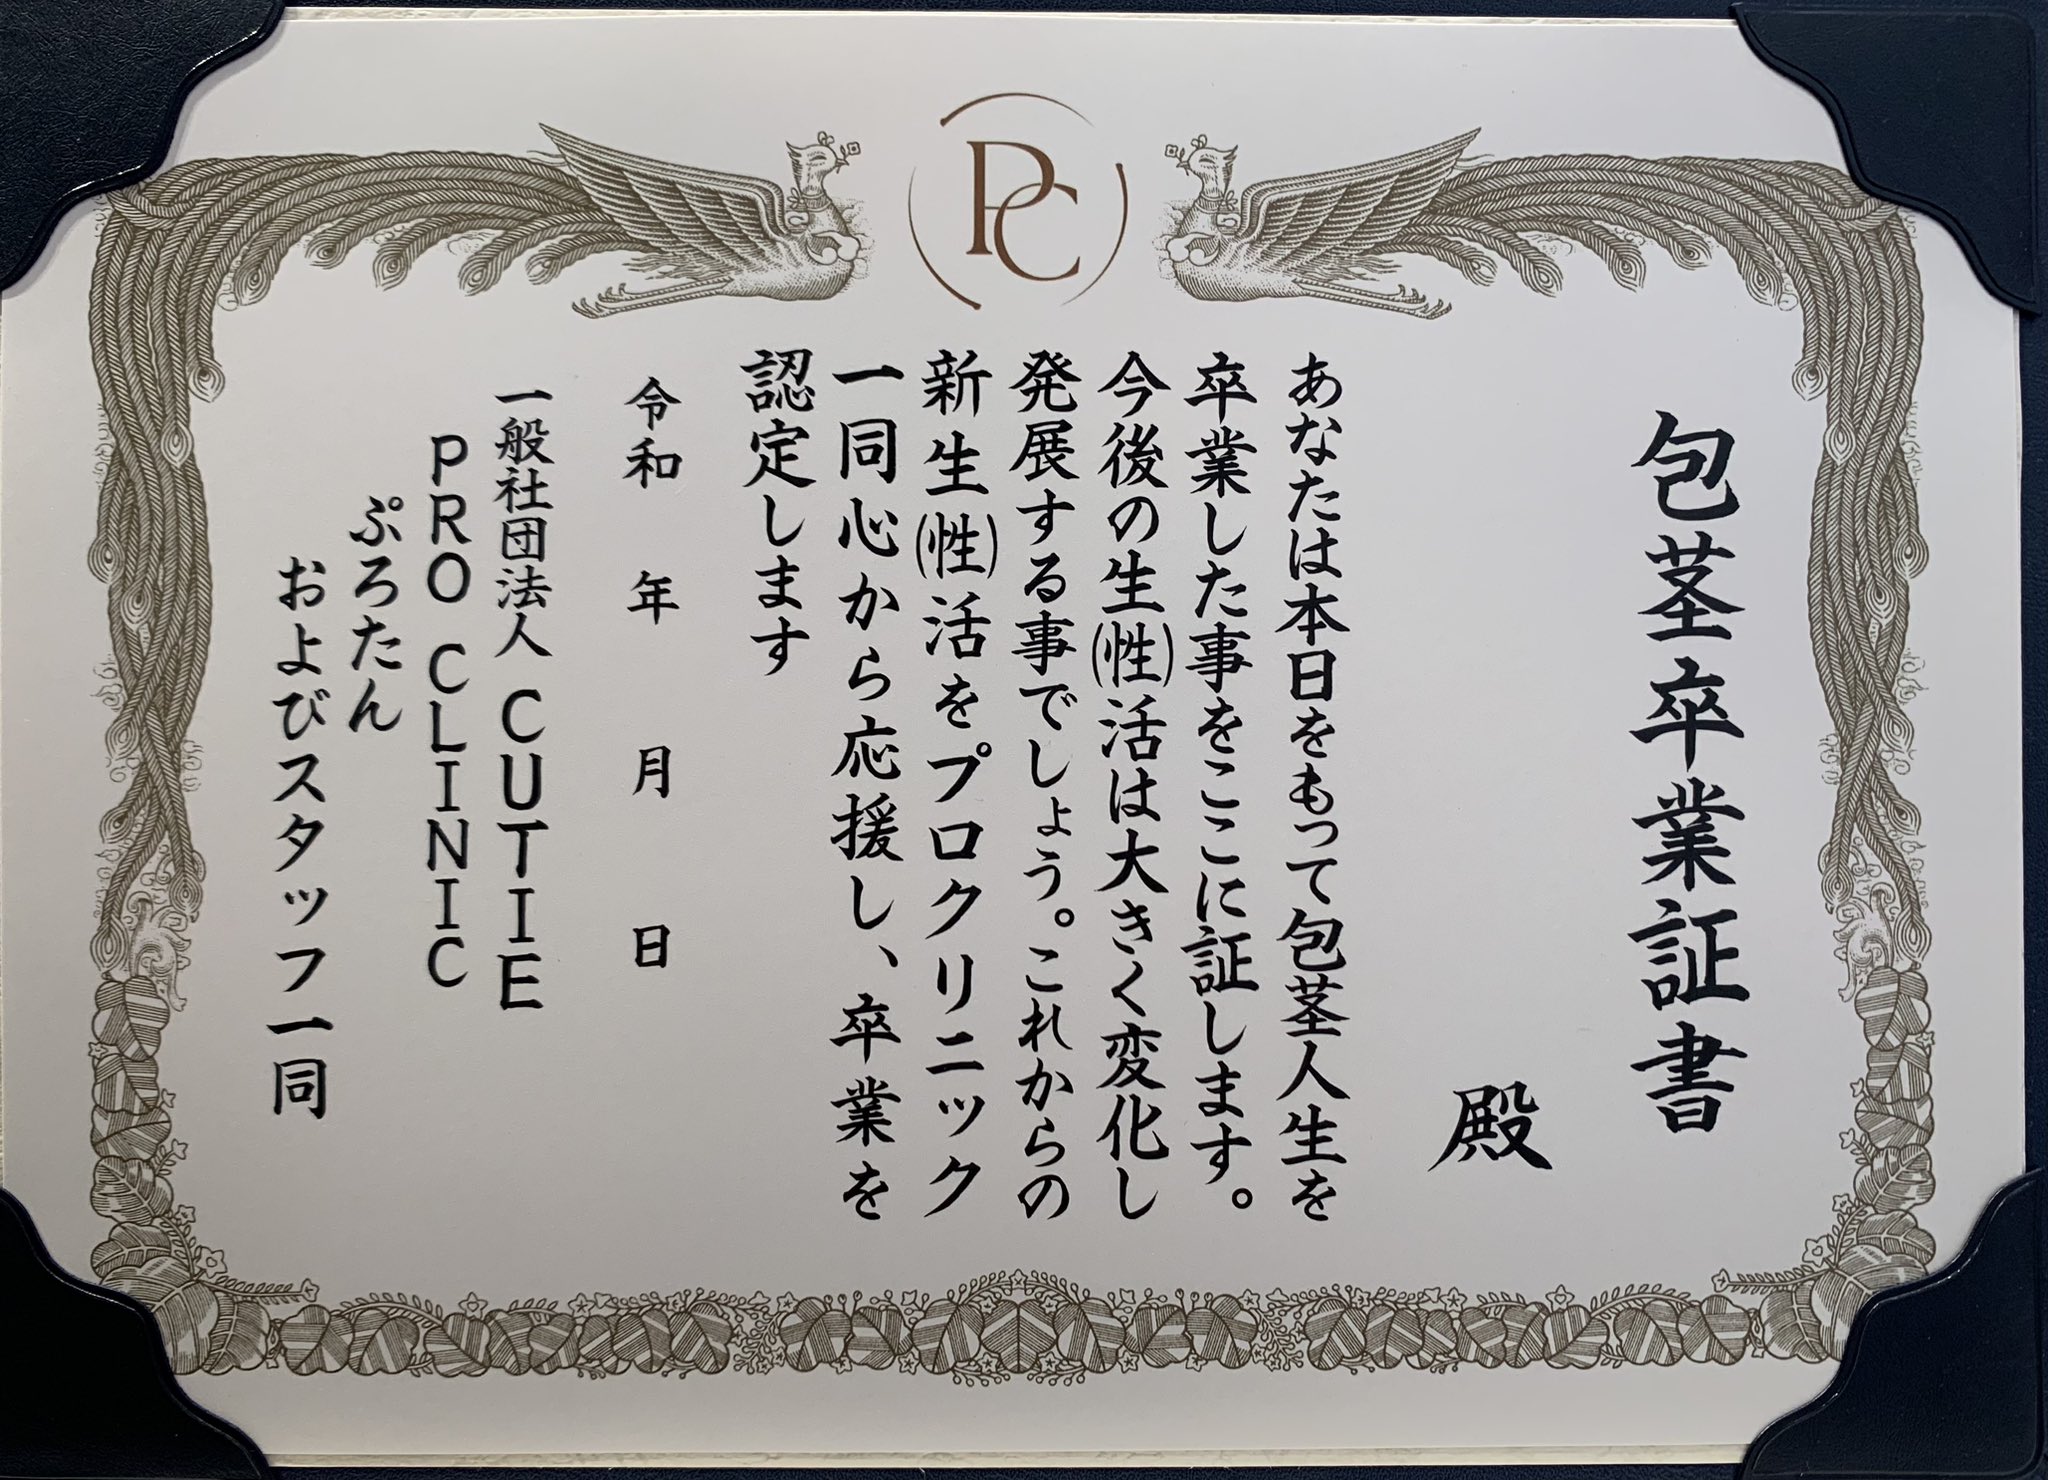 PC
包茎卒業証書
殿
あなたは本日をもって包茎人生を
卒業した事をここに証します。
今後の生(性)活は大きく変化し
発展する事でしょう。これからの
新生(性)活をプロクリニック
一同心から応援し、卒業を
認定します
令和 年 月 日
一般社団法人 CUTIE
PRO CLINIC
ぷろたん
およびスタッフ一同